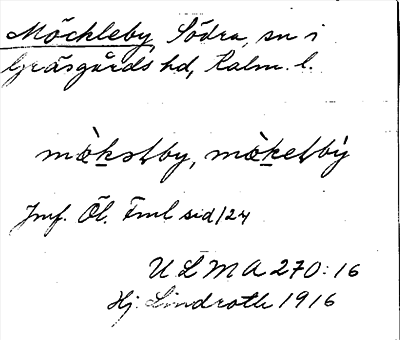 Möckleby, Södra, sn i
Gräsgårds hd, Kalm. l.
Jmf. Öl. Fml sid 124
ULMA 270:16
Hj. Lindroth 1916